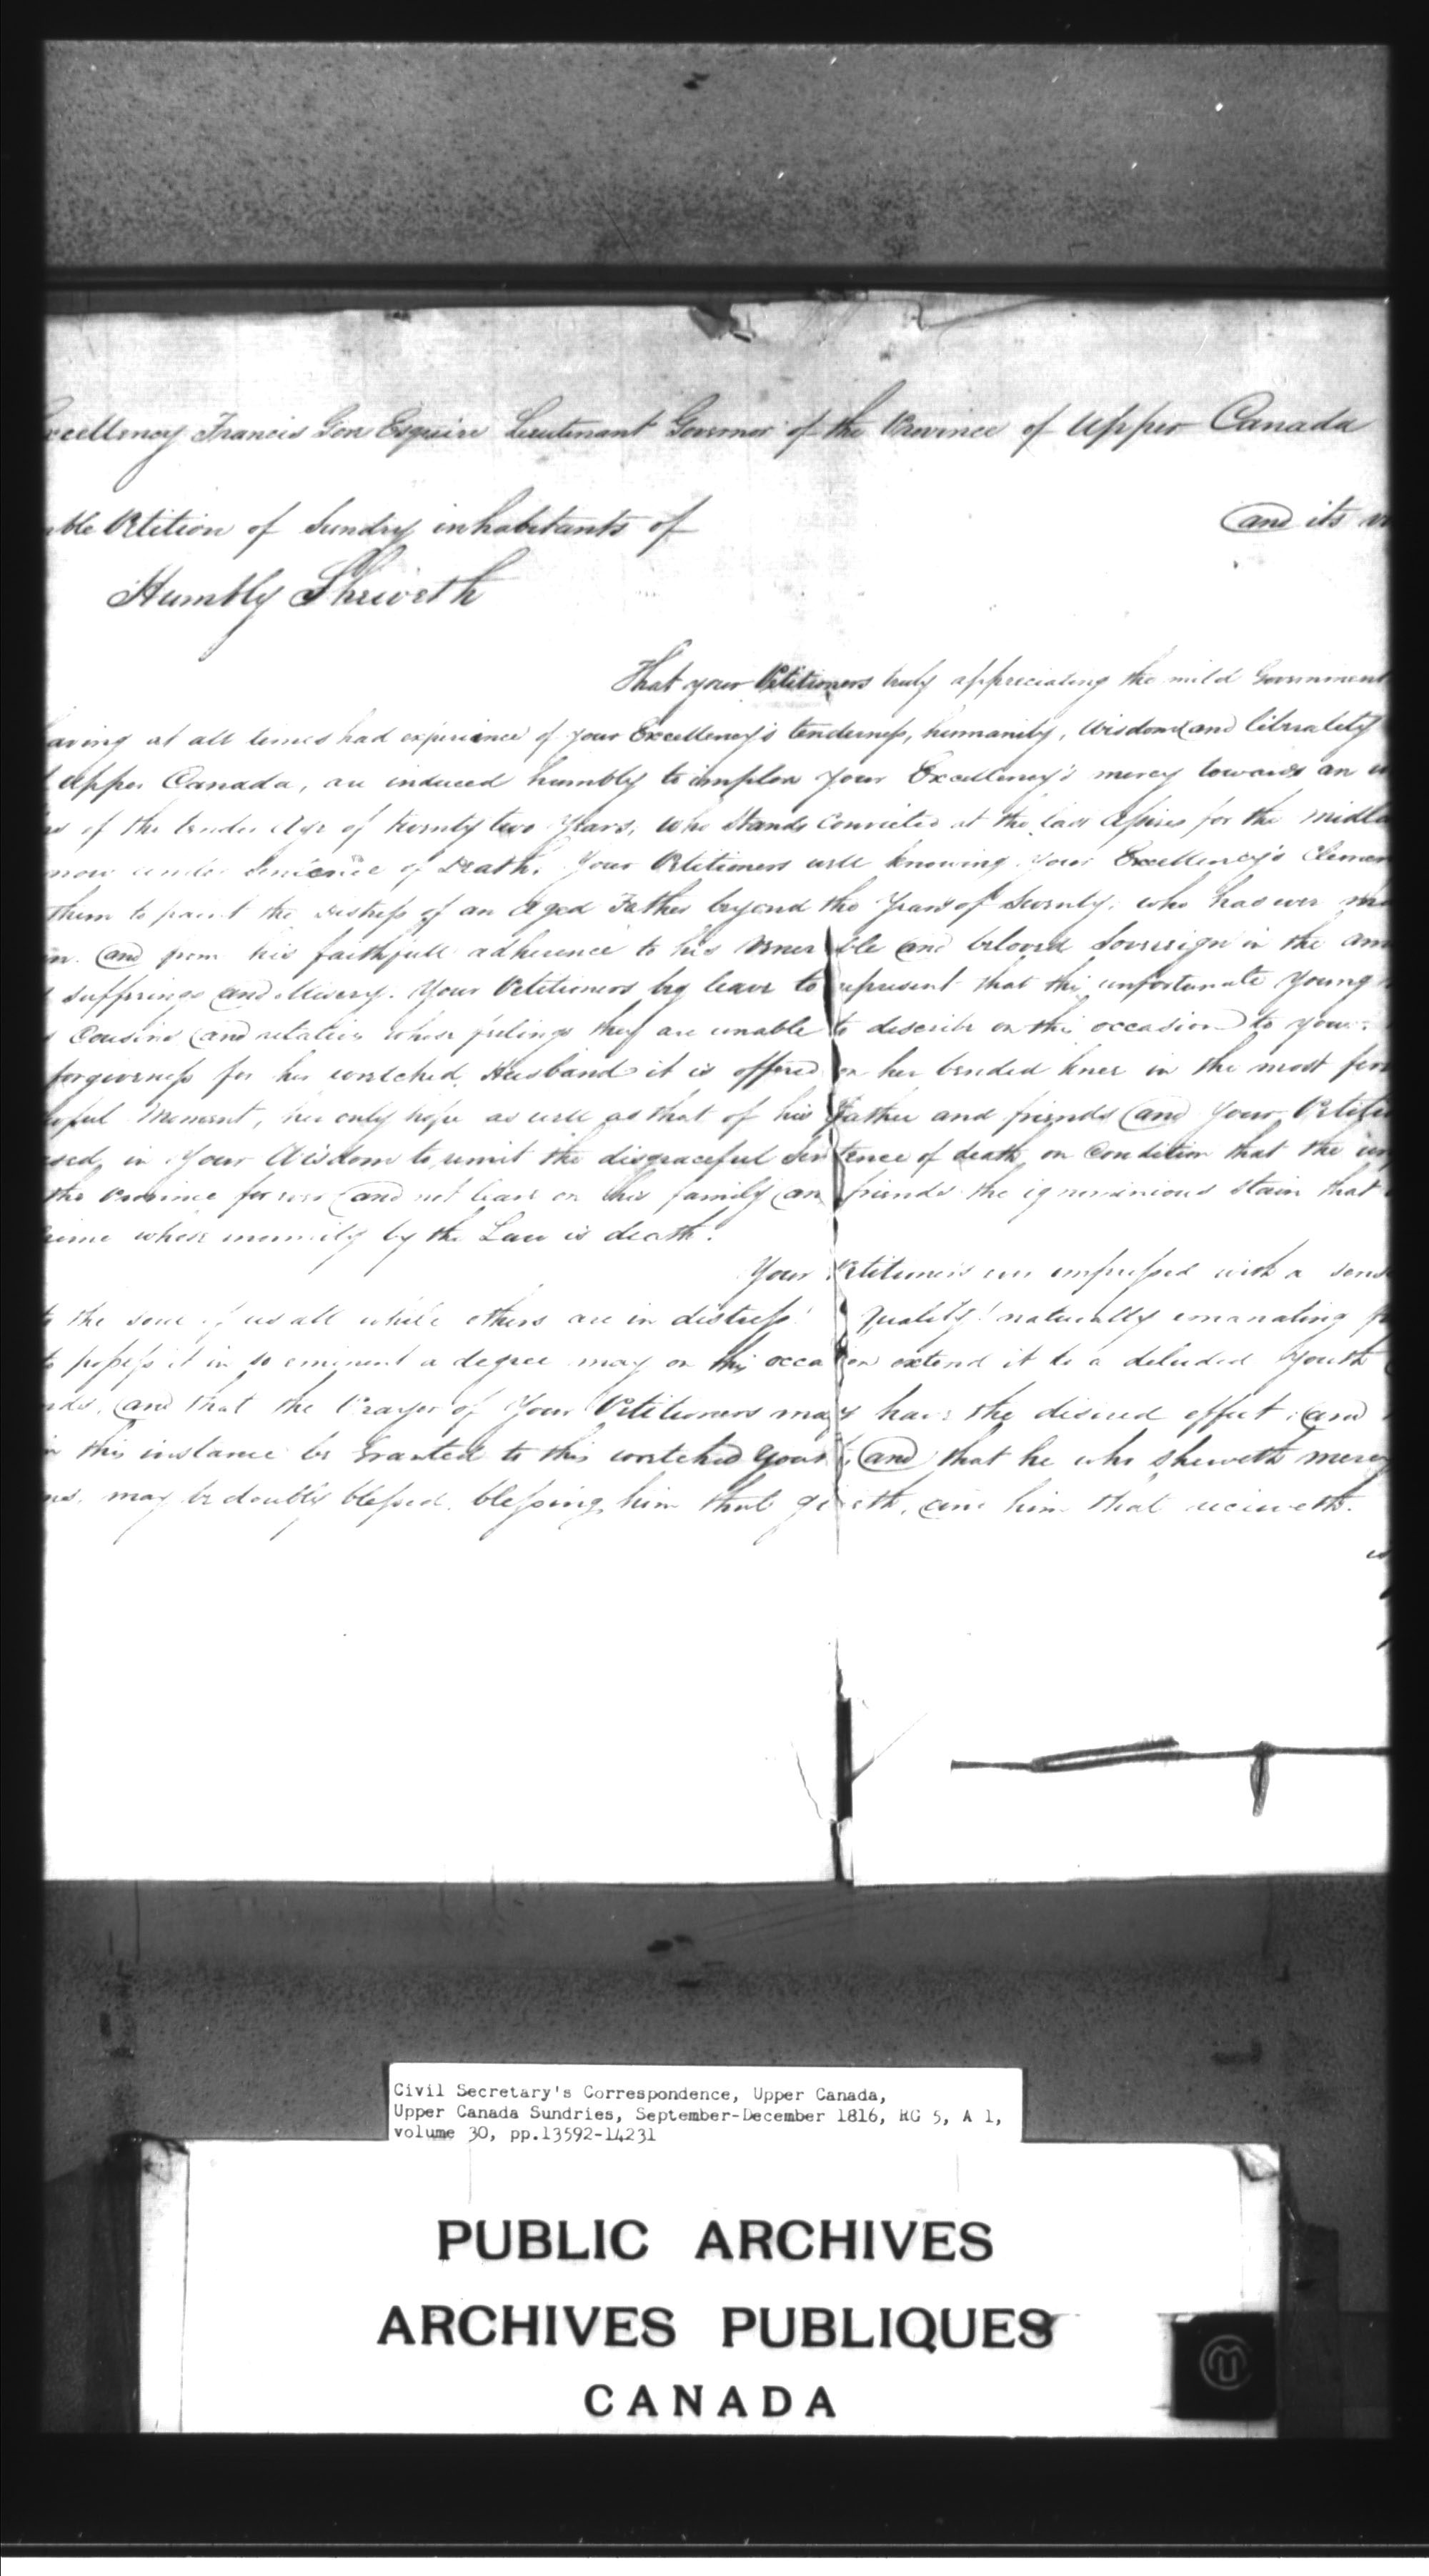 xcellency Francis Gore Esquire Lieutenant Governor of the Province of Upper Canada
ble Petition of Sundry inhabitants of and its
Humbly Sheweth
That your Petitioners truly appreciating the mild Government
aving at all times had experience of your Excellency's tenderness, humanity, Wisdom and liberality
Upper Canada, are induced humbly to implore your Excellency's mercy towards an
of the tender Age of twenty two Years, who Stands Convicted at the last Assizes for the Midla
now under Sentence of Death. Your Petitioners well knowing your Excellency's Clemen
them to paint the distress of an Aged Father beyond the Years of Seventy, who has ever
and from his faithfull adherence to his Venerable and beloved Sovereign in the Am
sufferings and Misery. Your Petitioners beg leave to represent that this unfortunate Young
Cousins and relatives whose feelings they are unable to describe on this occasion to your
forgiveness for her wretched Husband it is offered on her bended knees in the most fer
Moment, her only hope as well as that of his father and friends and Your Petiti
sed, in Your Wisdom to remit the disgraceful Sentence of death, on Condition that the un
the Province for ever and not leave on his family an friends the ignominious stain that
rime whose enormity by the Law is death.
Your Petitioners impressed with a sens
to the soul of us all while others are in distress! Quality! naturally emanating
to possess it in so eminent a degree may on this occasion extend it to a deluded Youth
nds, and that the Prayer of Your Petitioners may have the desired effect, and
in this instance be Granted to this wretched Youth, and that he who sheweth mercy
may be doubly blessed, blessing him that giveth, and him that receiveth.
Civil Secretary's Correspondence, Upper Canada,
Upper Canada Sundries, September-December 1816, RG 5, A 1,
volume 30, pp.13592-14231
PUBLIC ARCHIVES
ARCHIVES PUBLIQUES
CANADA